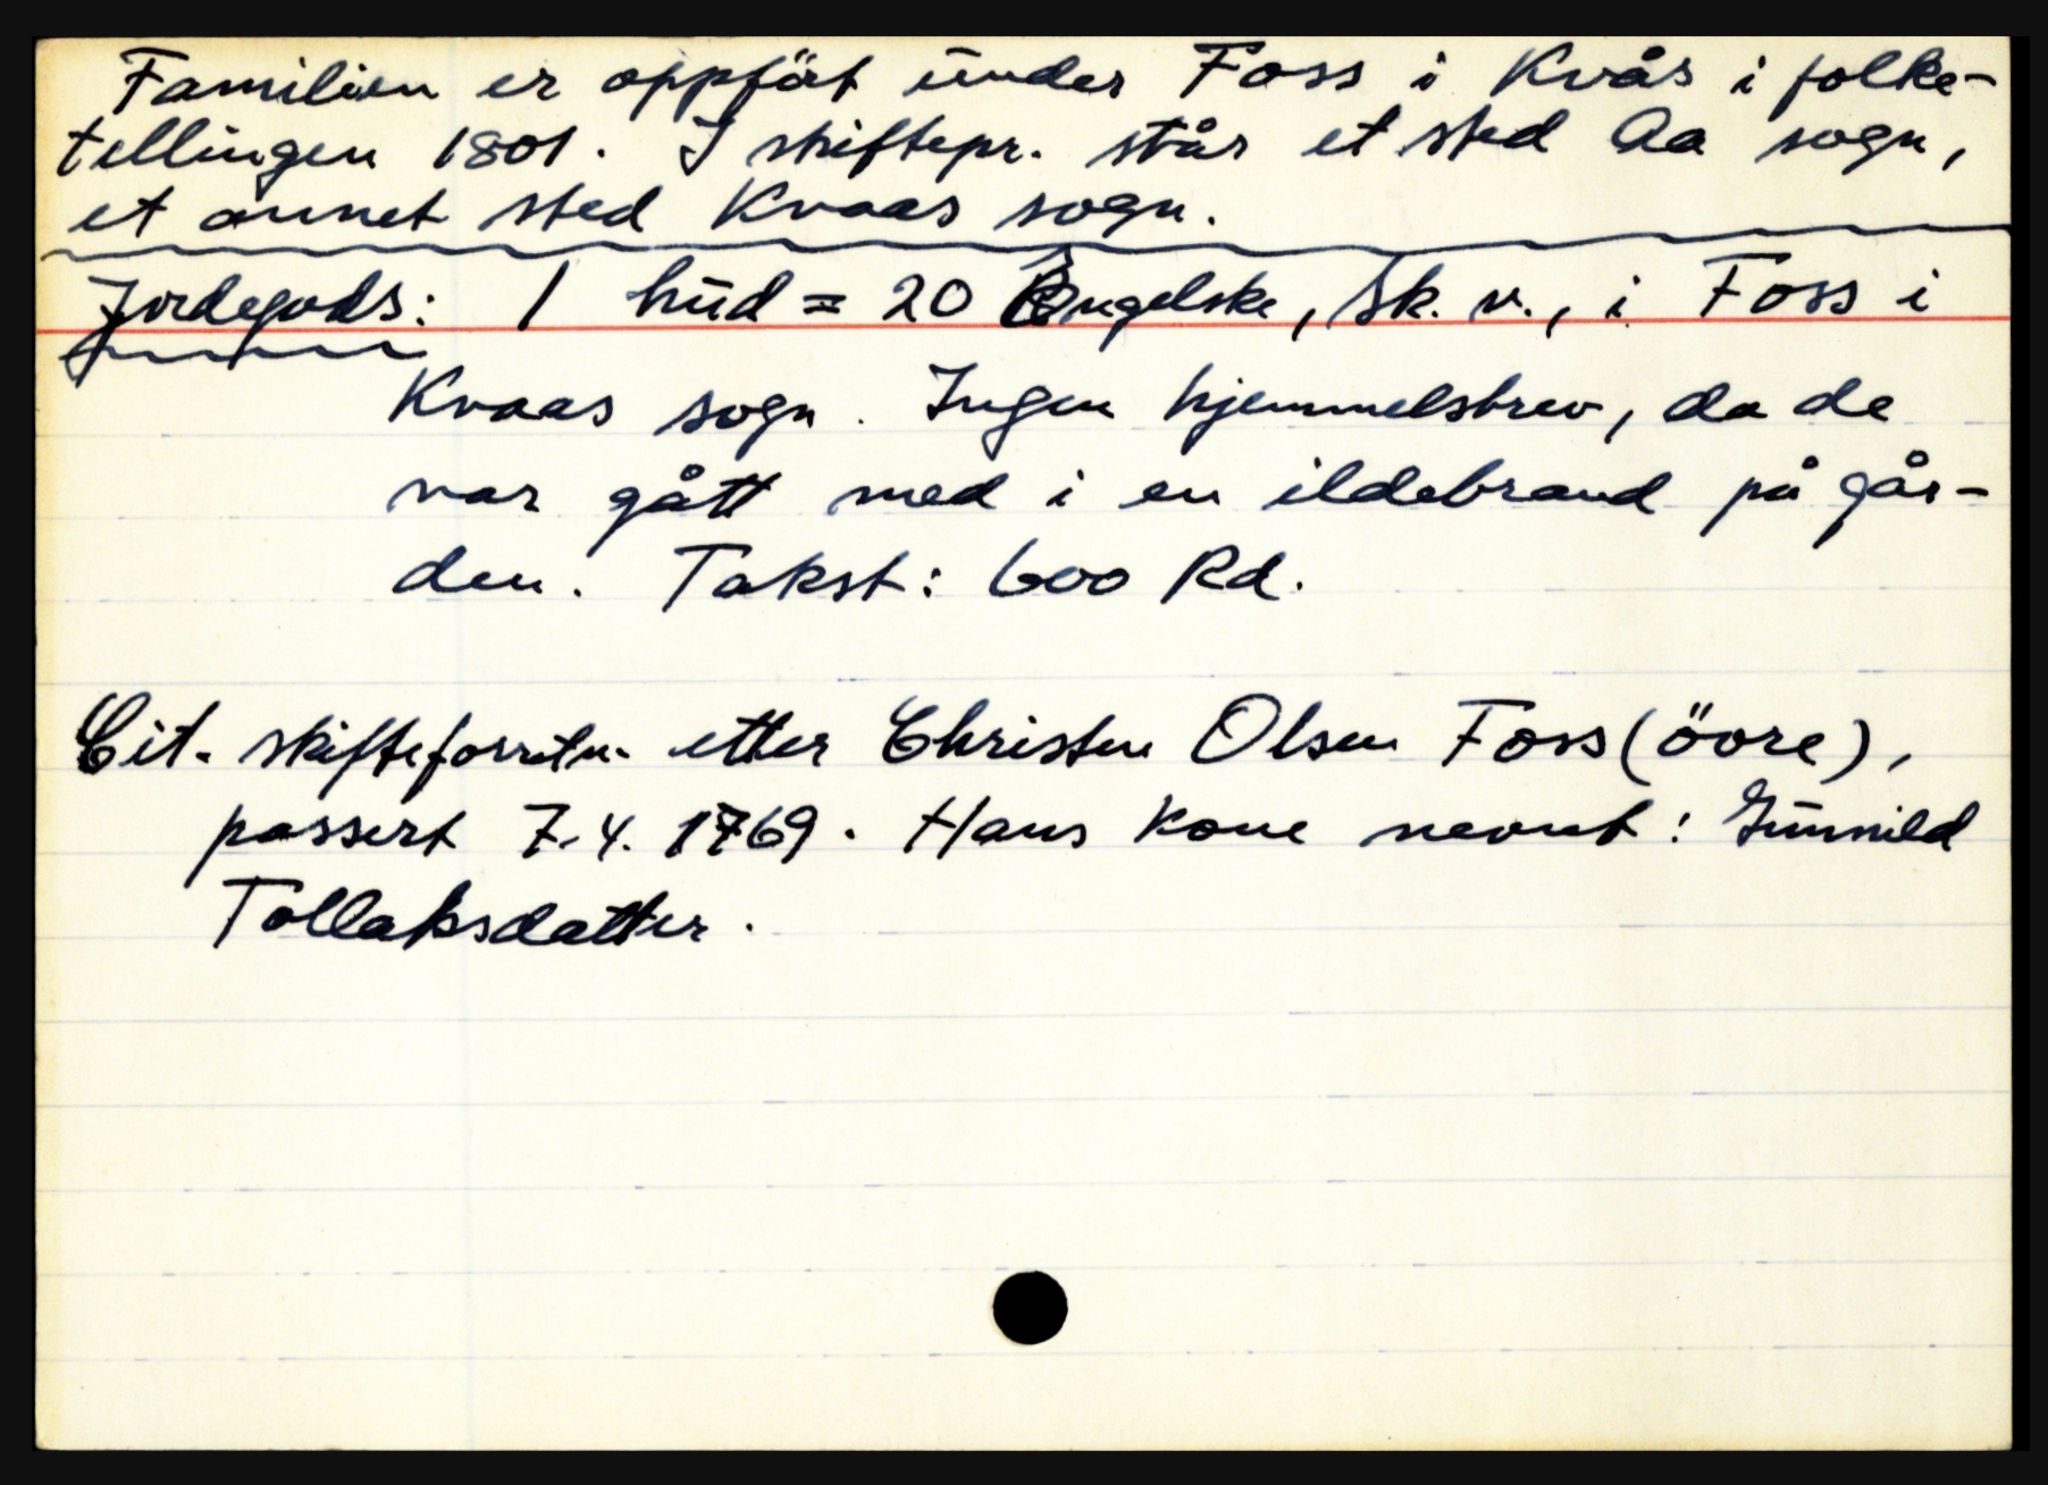 Familien er oppfört under Foss i Kvås i folke-
tellingen 1801. I skiftepr. står et sted Aa sogn,
et annet sted Kvaas sogn.
Jordegods: 1 hud = 20 Engelske, sk. v., i Foss i
Kvaas sogn. Ingen hjemmelsbrev, da de
var gått med i en ildebrand på går-
den. Takst: 600 Rd.
Cit. skifteforretn. etter Christen Olsen Foss (övre),
passert 7.4. 1769. Hans kone nevnt: Gunnild
Tollaksdatter.